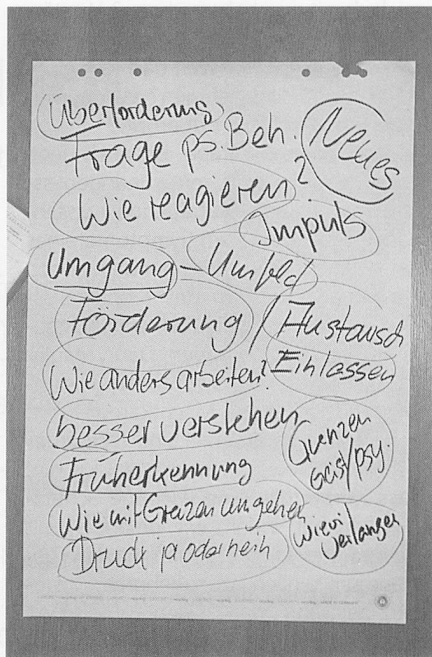 Überforderung
Frage ps. Beh.
Neues
Wie reagieren?
Impuls
Umgang - Umfeld
Förderung / Austausch
Wie anders arbeiten?
Einlassen
besser verstehen
Grenzen
Geist/psy.
Früherkennung
Wie mit Grenzen umgehen
Druck ja oder nein
verlangen